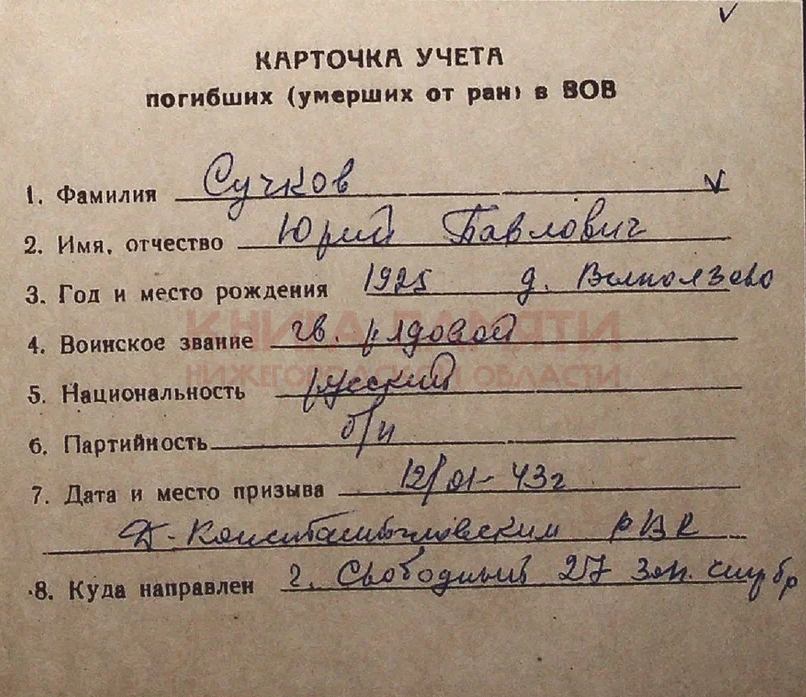 КАРТОЧКА УЧЕТА
погибших (умерших от ран) в ВОВ
1. Фамилия Сучков
2. Имя, отчество Юрий Павлович
3. Год и место рождения 1925 д.
4. Воинское звание гв. рядовой
КНИГА ПАМЯТИ
5. Национальность русский
НИЖЕГОРОДСКОЙ ОБЛАСТИ
6. Партийность б/п
7. Дата и место призыва 12/01-43г
Д-Константиновским РВК
8. Куда направлен г. Свободный 27 Зап. стр бр